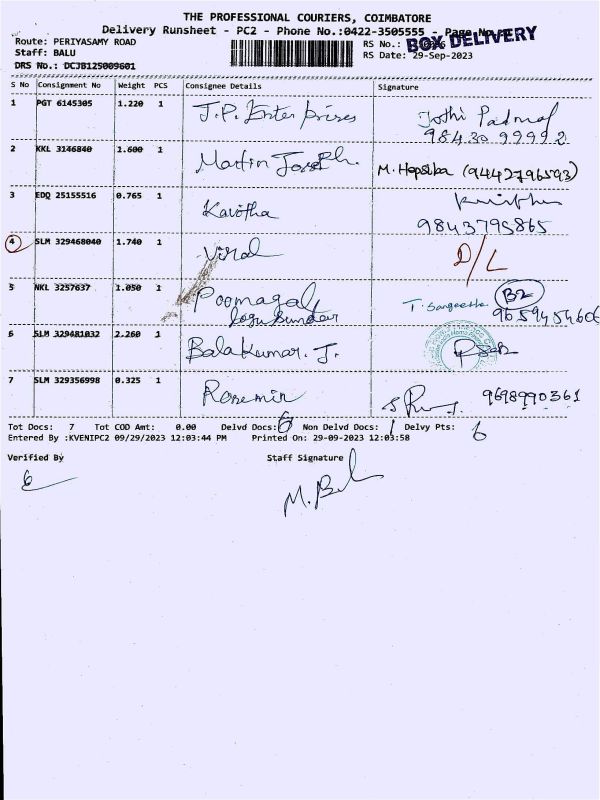 THE PROFESSIONAL COURIERS, COIMBATORE
Delivery Runsheet - PC2 - Phone No.:0422-3505555 - Page No.:
BOX DELIVERY
Route: PERIYASAMY ROAD
RS No.:
Staff: BALU
RS Date: 29-Sep-2023
DRS No.: DCJB125009601
S No Consignment No Weight PCS Consignee Details Signature
1 PGT 6145305 1.220 1 J.P. Enterprises Jothi
98430 99992
2 KKL 3146840 1.600 1 Martin Joseph. M. Hepsiba (9442796593)
3 EDQ 25155516 0.765 1 Kavitha
9843795865
4 SLM 329468040 1.740 1 Viral D/L
5 NKL 3257637 1.050 1 Poomagal T. Sangeetha B2
logu Sundar 9659454606
6 SLM 329481032 2.260 1 Bala Kumar. J.
7 SLM 329356998 0.325 1 Rosemin 9698990361
Tot Docs: 7 Tot COD Amt: 0.00 Delvd Docs: 6 Non Delvd Docs: 1 Delvy Pts: 6
Entered By :KVENIPC2 09/29/2023 12:03:44 PM Printed On: 29-09-2023 12:03:58
Verified By Staff Signature
M. Bal